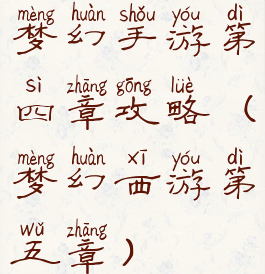 mèng huàn shǒu yóu dì
梦幻手游第
sì zhāng gōng lüè
四章攻略（
mèng huàn xī yóu dì
梦幻西游第
wǔ zhāng
五章）